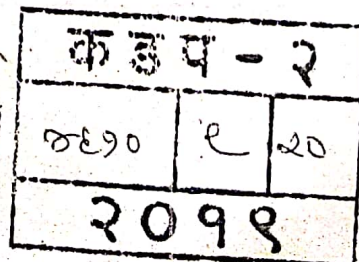 कउप - २
४६१० ९ २०
२०१९